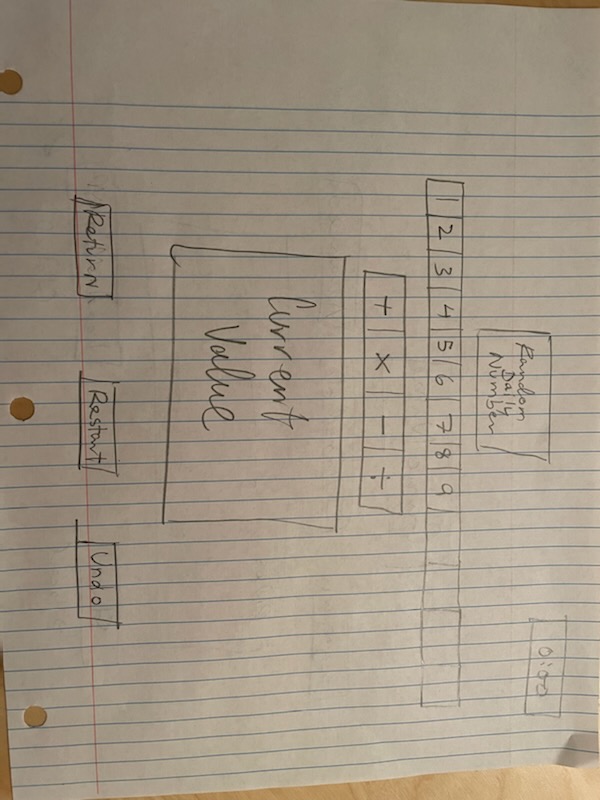 Random
Daily
Number
0:00
1 2 3 4 5 6 7 8 9
+ × - ÷
Current
Value
Return Restart Undo